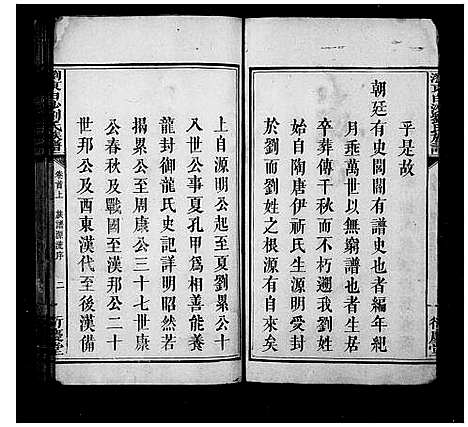 乎是故
朝廷有史閥閱有譜史也者編年紀
月乘萬世以無窮譜也者生居
卒葬傳千秋而不朽遡我劉姓
始自陶唐伊祈氏生源明受封
於劉而劉姓之根源有自來矣
上自源明公起至夏劉累公十
八世公事夏孔甲為相善能養
龍封御龍氏史記詳明昭然若
揭累公至周康公三十七世康
公春秋及戰國至漢邦公二十
世邦公及西東漢代至後漢備
卷首上 族譜源流序 二